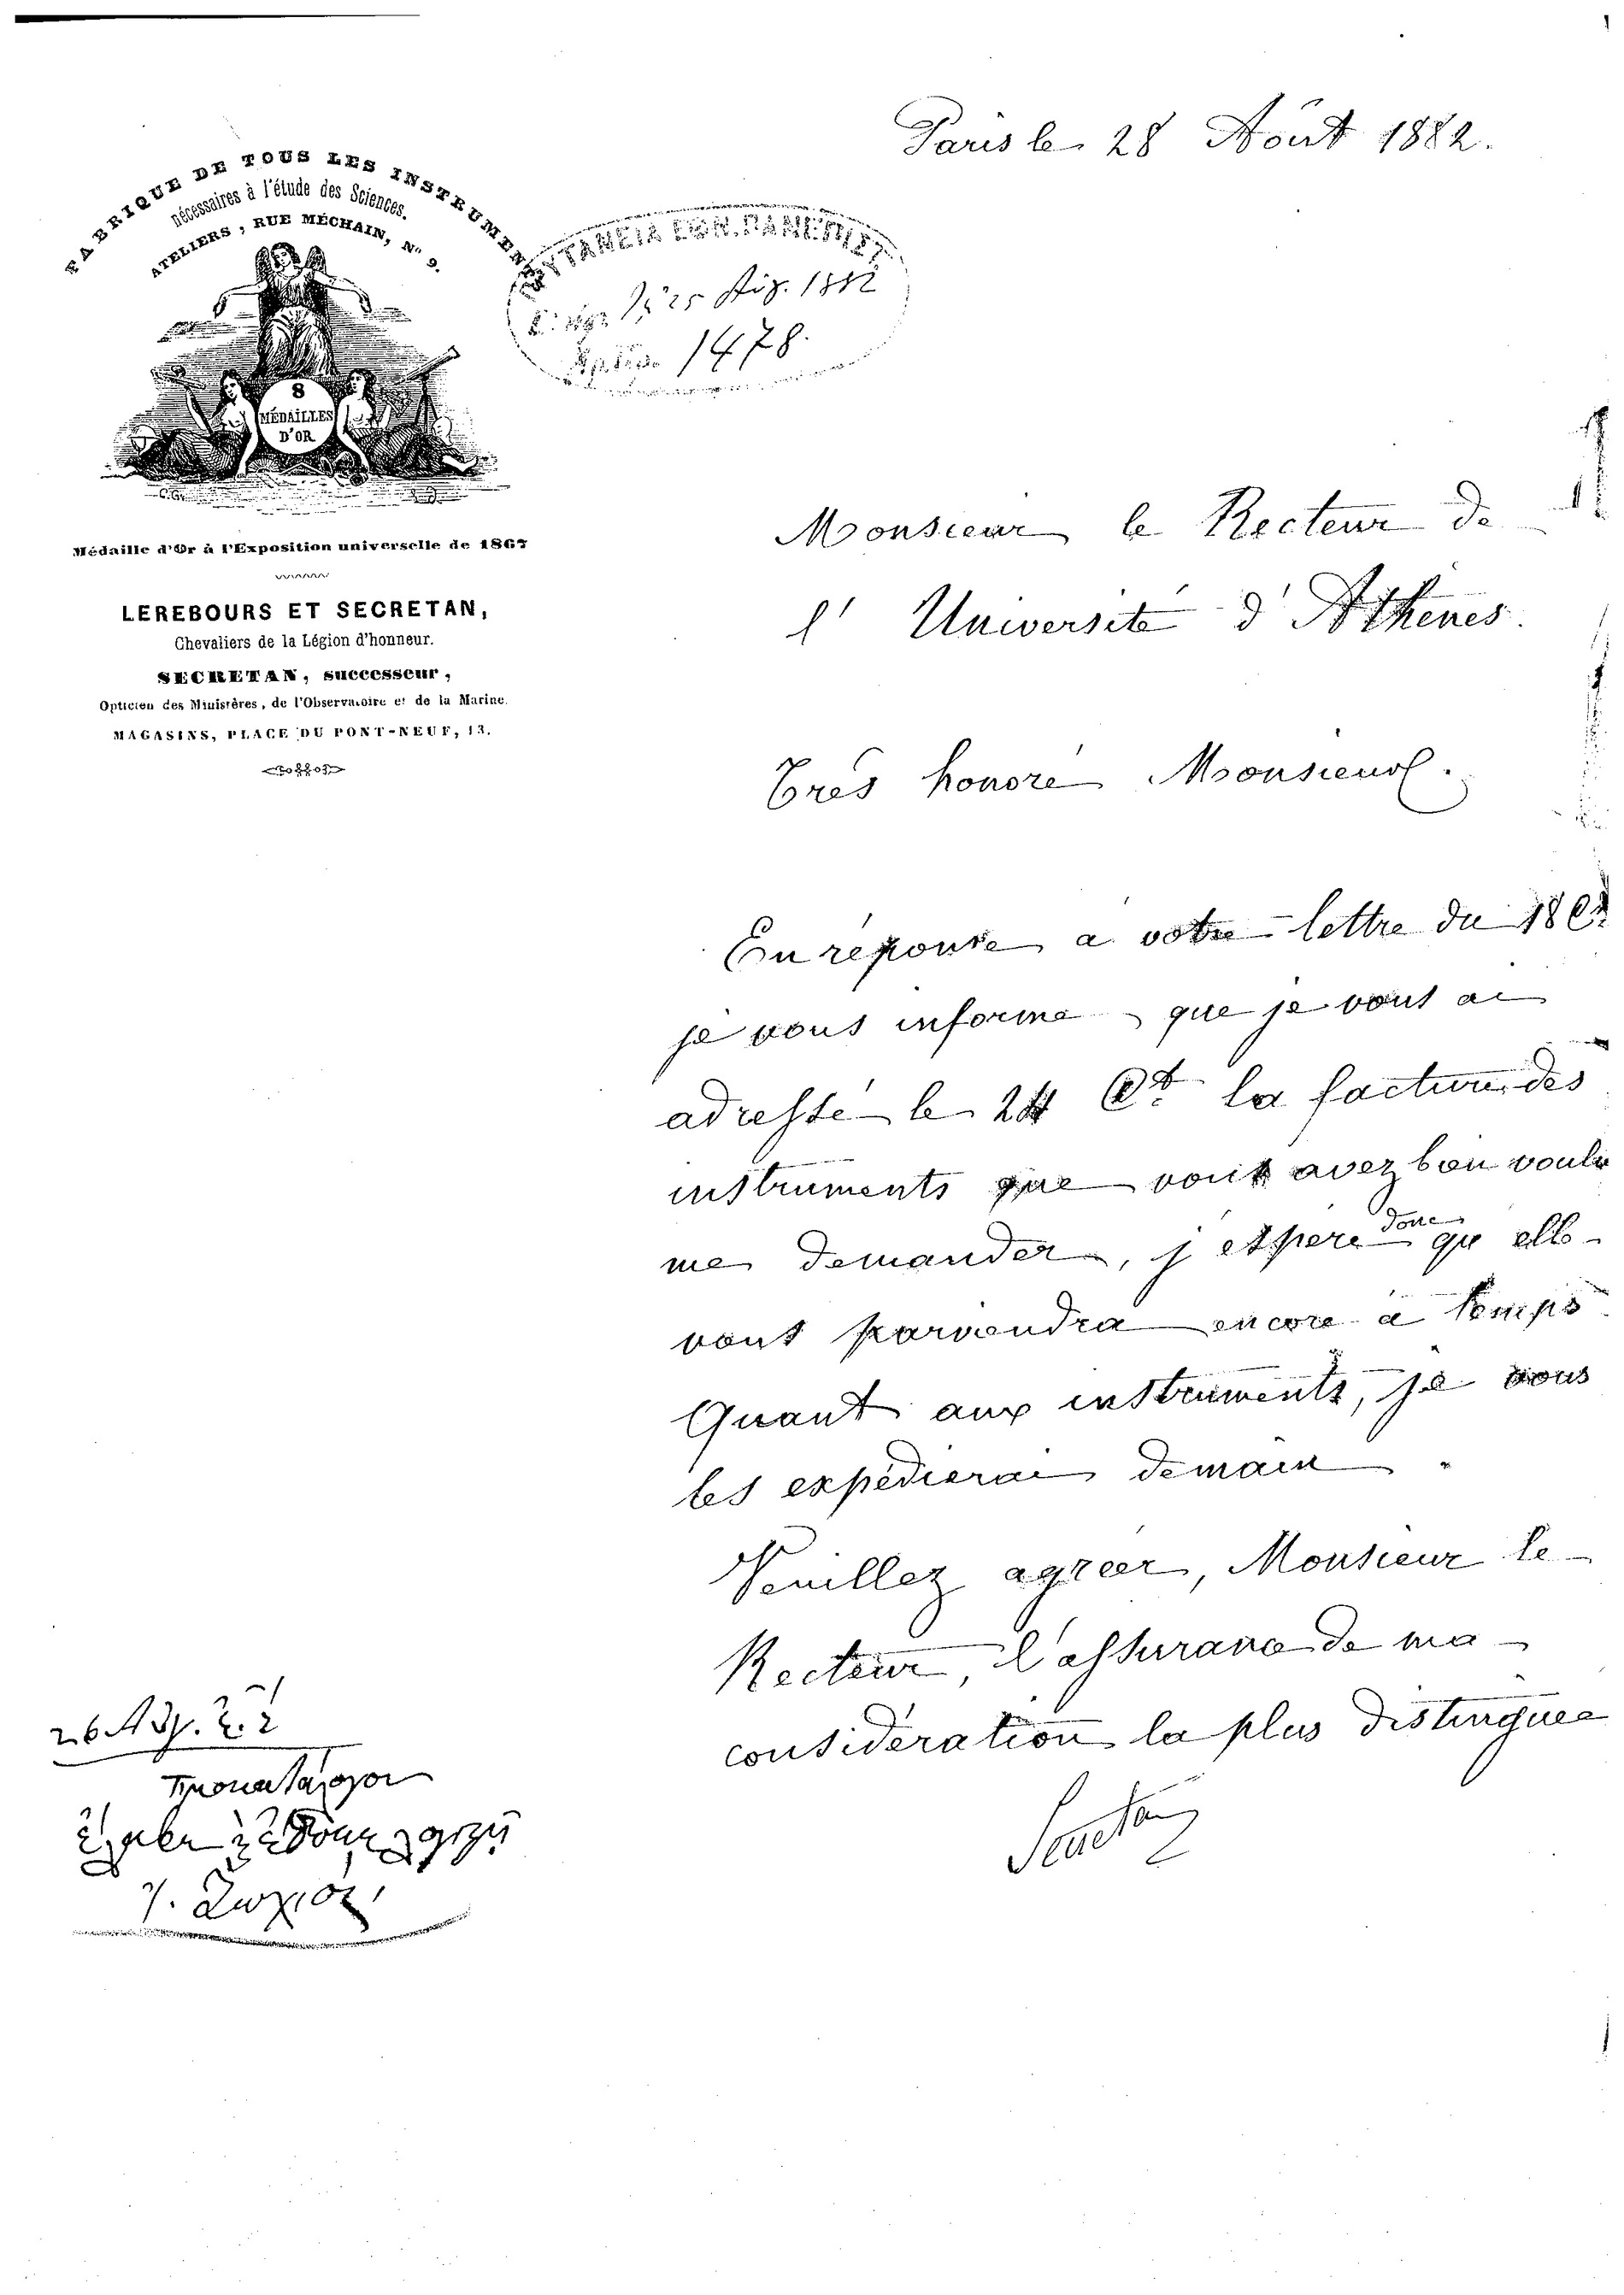 Paris le 28 Août 1882.
FABRIQUE DE TOUS LES INSTRUMENTS
nécessaires à l'étude des Sciences.
ATELIERS, RUE MÉCHAIN, N° 9.
25 1882
1478.
8
MÉDAILLES
D'OR
Médaille d'Or à l'Exposition universelle de 1867
LEREBOURS ET SECRETAN,
Chevaliers de la Légion d'honneur.
SECRETAN, successeur,
Opticien des Ministères, de l'Observatoire et de la Marine.
MAGASINS, PLACE DU PONT-NEUF, 13.
Monsieur le Recteur de
l' Université d'Athènes.
Très honoré Monsieur.
En réponse a votre lettre du 18 
je vous informe que je vous ai
adressé le 24 Ct la facture des
instruments que vous avez bien voulu
me demander, j espere donc qu elle
vous parviendra encore à temps
Quant aux instruments, je vous
les expédierai demain.
Veuillez agréer, Monsieur le
Recteur, l'assurance de ma
considération la plus distinguée
Secretan
26